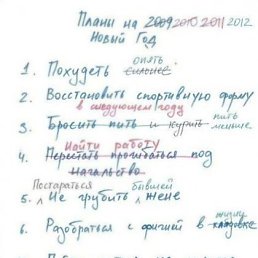 Планы на 2009 2010 2011 2012
Новый Год
опять
1. Похудеть сильнее
2. Восстановить спортивную форму
в следующем году
пить
3. Бросить пить и курить меньше
Найти работу
4. Перестать прогибаться под
начальство
Постараться бывшей
5. Не грубить жене
жизнь
6. Разобраться с фигнёй в